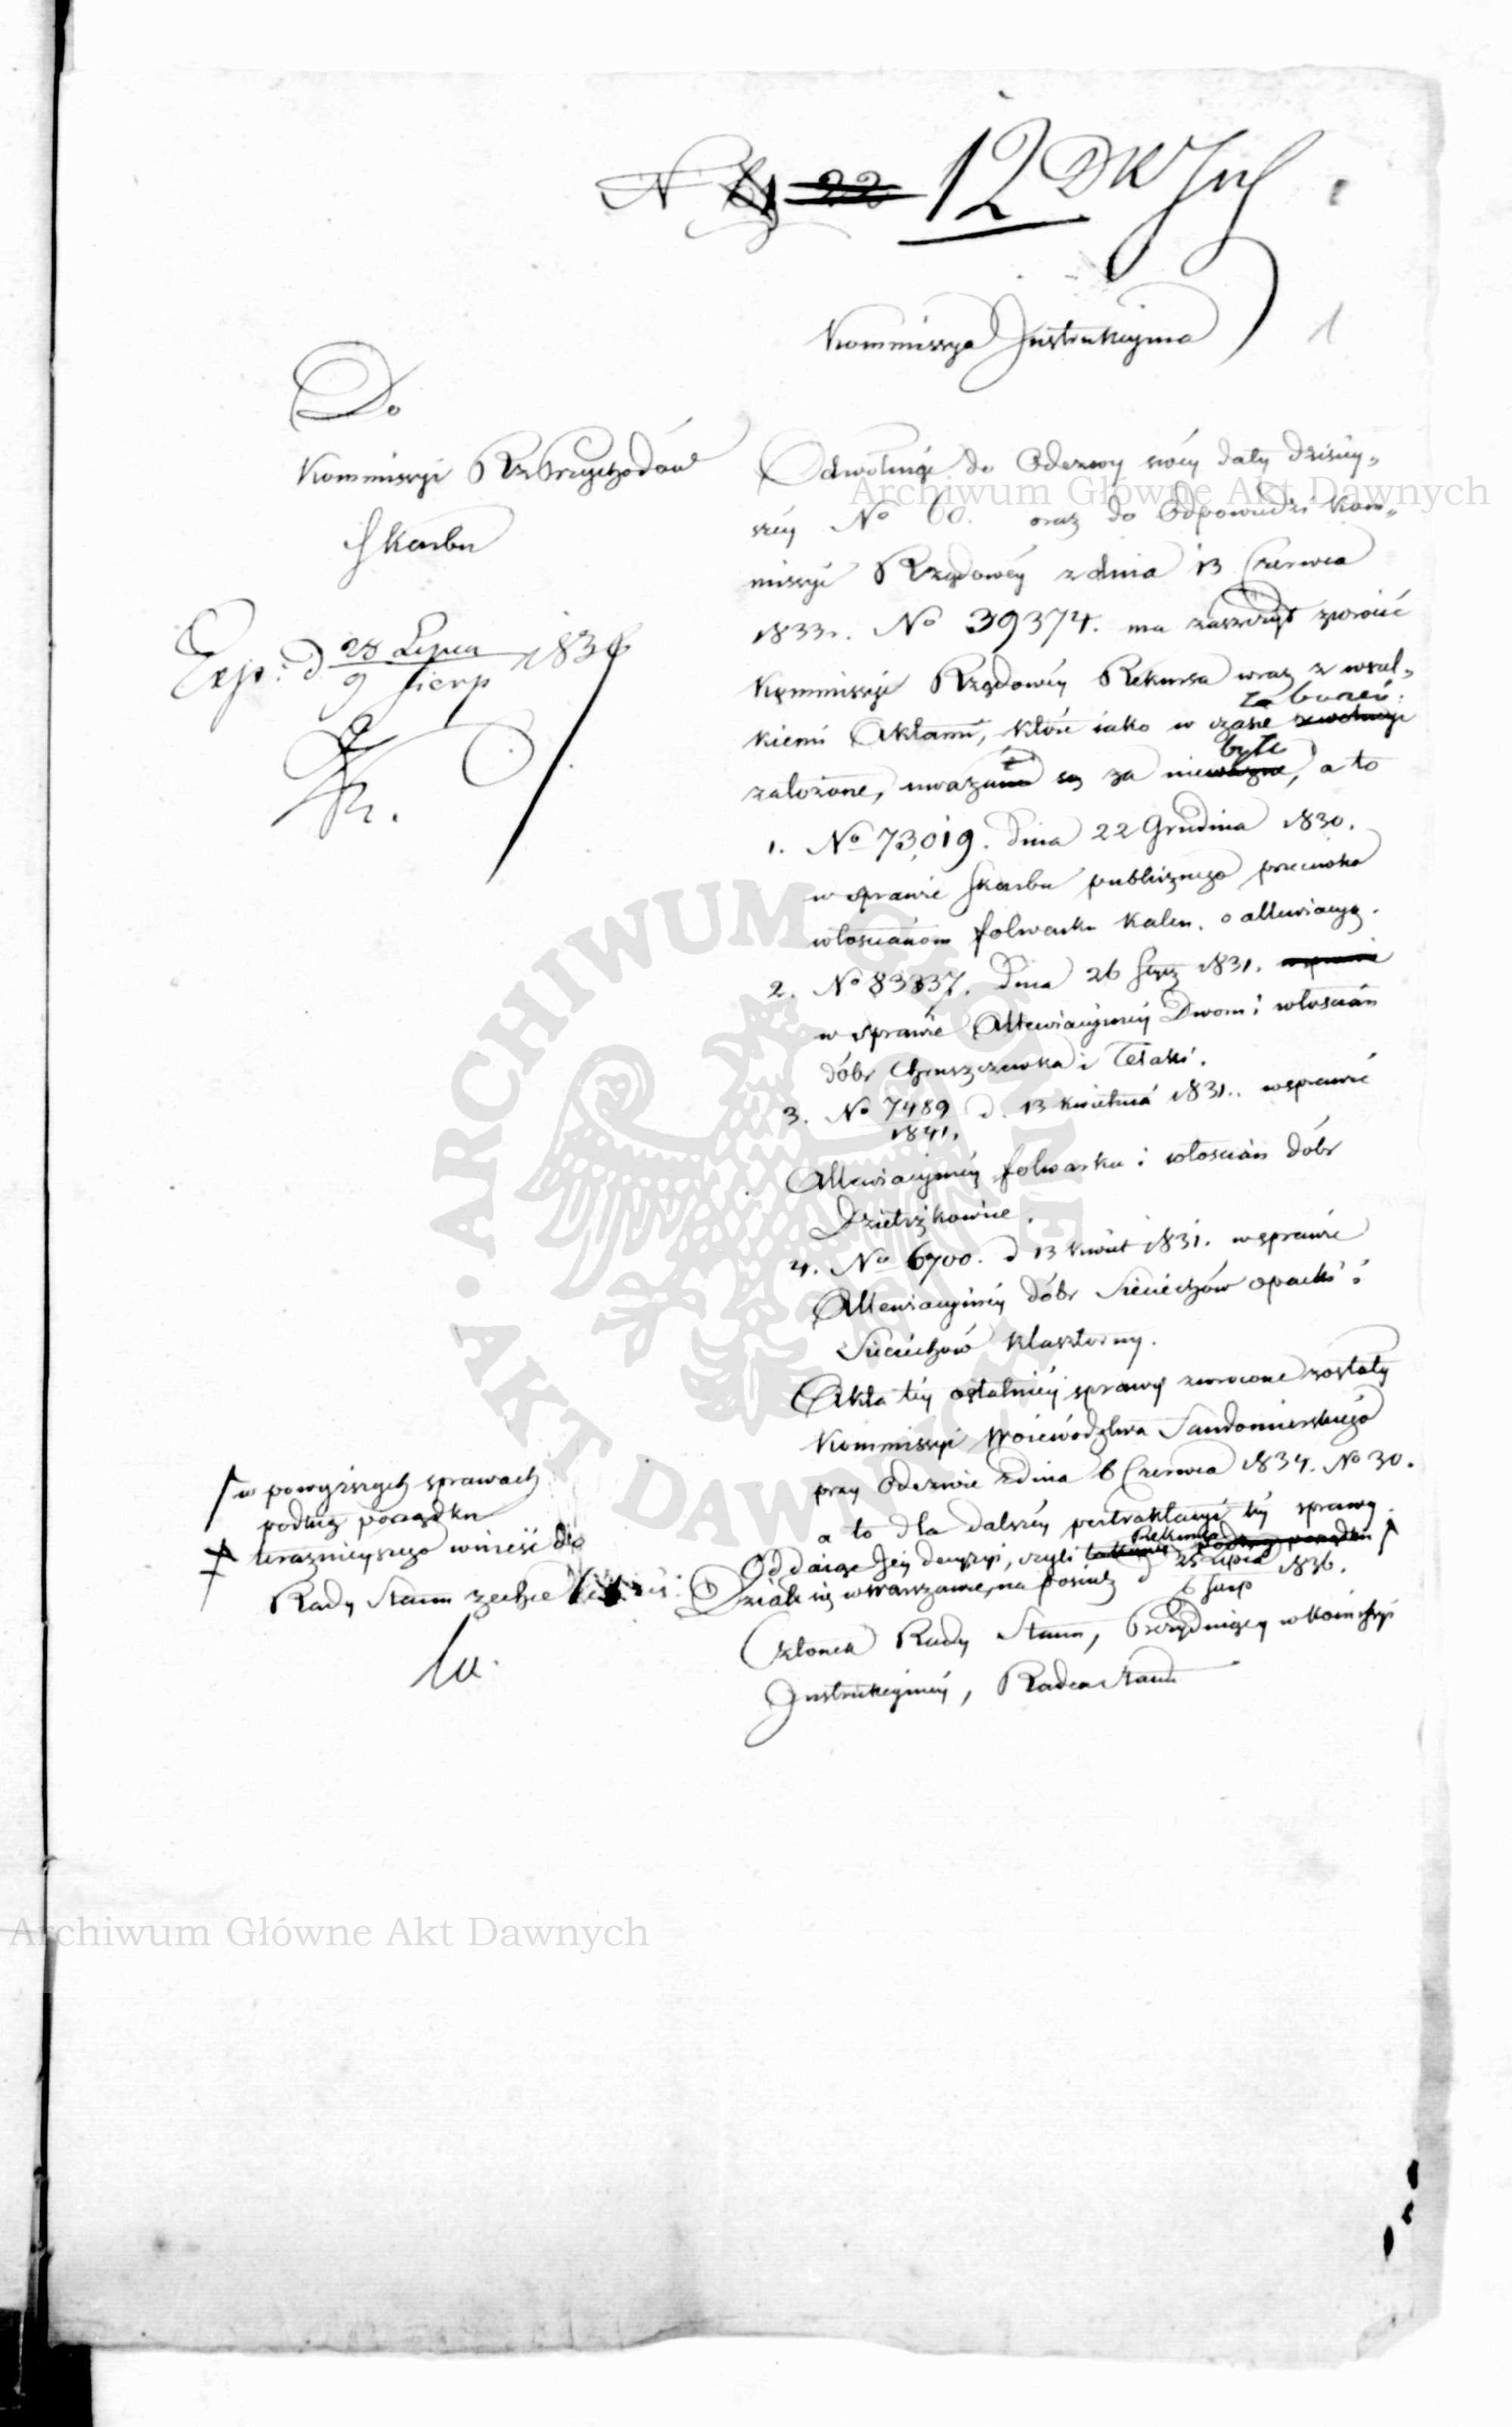 N 22 12
Kommissya Instrukcyina
1
Do
Kommissyi Rz Przychodów
Skarbu
Exp: d 28 Lipca 1836
9 Sierp
Odwołuiąc do Odezwy swéy daty dzisiey„
széy No 60. oraz do Odpowiedzi Kom„
missyi Rządowéy z dnia 13 Czerwca
1833r. No 39374. ma zaszczyt zwrócić
Kommissyi Rządowéy Rekursa wraz z wszel„
zaburzeń
kiemi Aktami, które iako w czasie rewolucyi
byłe
założone, uważane są za nieważne, a to
1. No 73,019. dnia 22 Grudnia 1830.
w sprawie Skarbu publicznego przeciwko
włościanom folwarku Kalen. o allewiacyą.
2. No 83337. dnia 26 Stycz 1831. w sprawie
w sprawie Allewiacyiney Dworu i włościan
dóbr Chruszczewka i Telaki.
3. No 7489 d. 13 Kwietnia 1831. w sprawie
1841.
Allewiacyinéy folwarku i włościan dóbr
Dzietrzkowice.
4. No 6700. d 13 Kwiet 1831. w sprawie
Allewiacyinéy dóbr Sieciechów opacki i
Sieciechów klasztorny.
Akta téy ostatniéy sprawy zwrócone zostały
Kommissyi Woiewództwa Sandomierskiego
przy Odezwie z dnia 6 Czerwca 1834. No 30.
a to dla dalszéy pertraktacyi téy sprawy.
Rekursa
Oddaiąc Jéy decyzyi, czyli takowe podług porządku
w powyższych sprawach
podług porządku
teraznieyszego wnieść do
Rady Stanu zechce
Działo się w Warszawie, na posiedz d 25 Lipca 1836.
6 Sierp
Członek Rady Stanu, Prezyduiący w Kommissyi
Instrukcyinéy, Radca Stanu
Archiwum Główne Akt Dawnych
ARCHIWUM GŁÓWNE
AKT DAWNYCH
Archiwum Główne Akt Dawnych